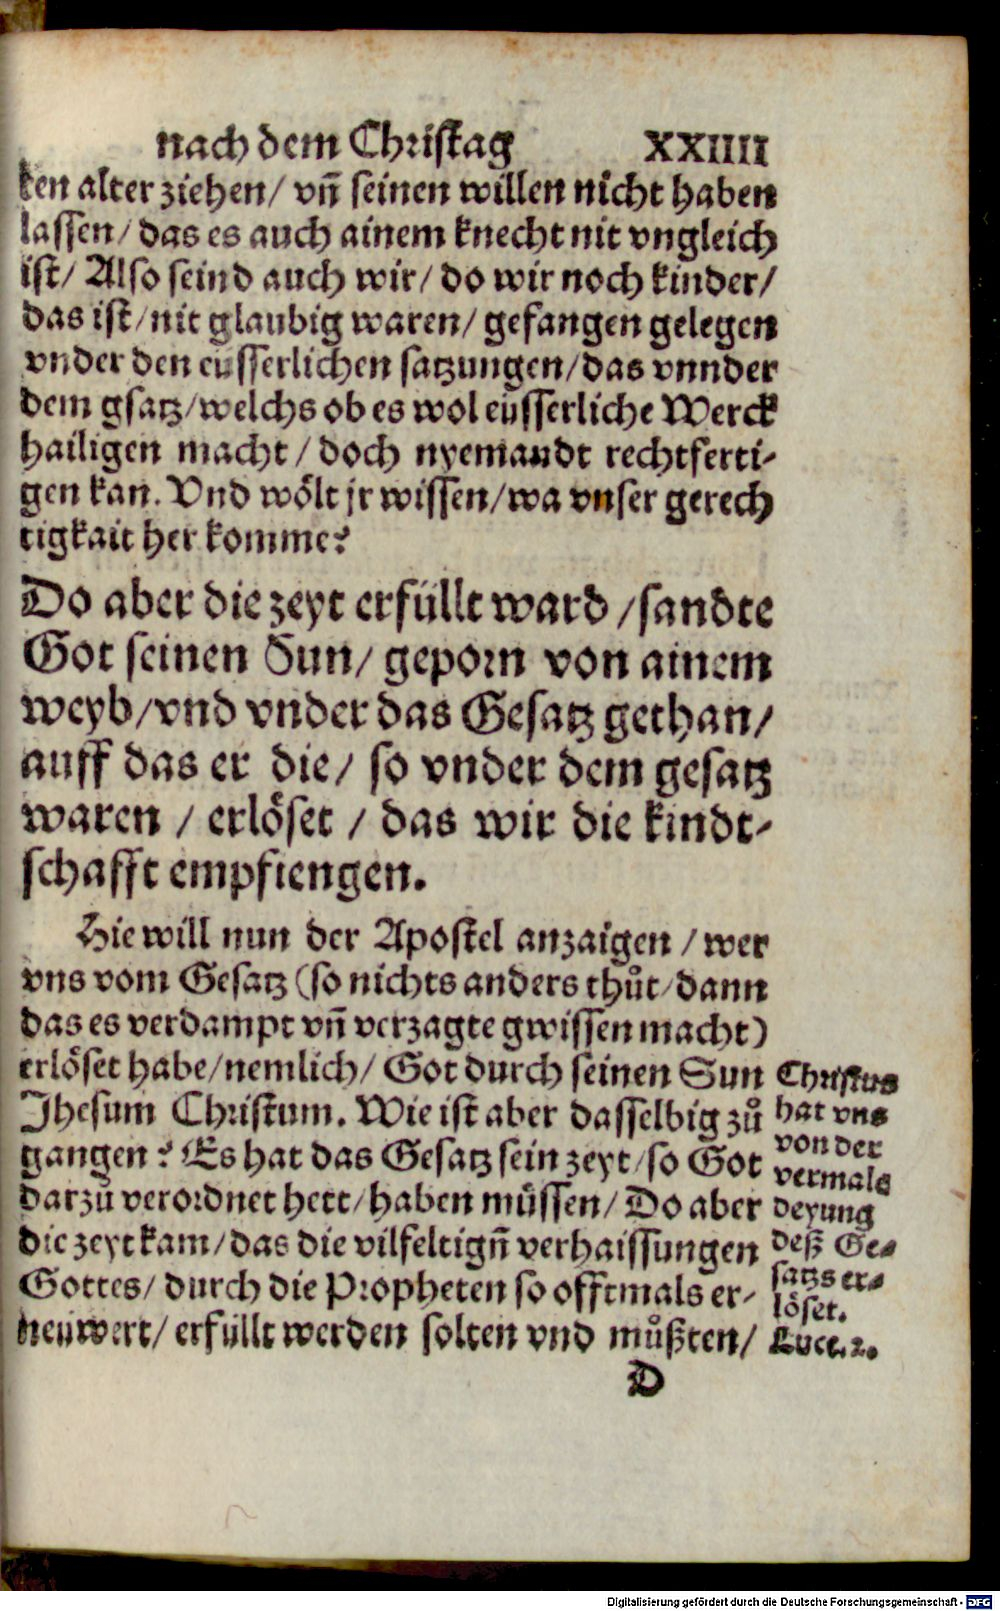 nach dem Christag XXIIII
ken alter ziehen/ vñ seinen willen nicht haben
lassen/ das es auch ainem knecht nit vngleich
ist/ Also seind auch wir/ do wir noch kinder/
das ist/ nit glaubig waren/ gefangen gelegen
vnder den eüsserlichen satzungen/ das vnnder
dem gsatz/ welchs ob es wol eüsserliche Werck
hailigen macht/ doch nyemandt rechtferti-
gen kan. Vnd wölt jr wissen/ wa vnser gerech
tigkait her komme?
Do aber die zeyt erfüllt ward/ sandte
Got seinen Sun/ geporn von ainem
weyb/ vnd vnder das Gesatz gethan/
auff das er die/ so vnder dem gesatz
waren/ erlöset/ das wir die kindt-
schafft empfiengen.
Hie will nun der Apostel anzaigen/ wer
vns vom Gesatz (so nichts anders thůt/ dann
das es verdampt vñ verzagte gwissen macht)
erlöset habe/ nemlich/ Got durch seinen Sun
Jhesum Christum. Wie ist aber dasselbig zů
gangen? Es hat das Gesatz sein zeyt/ so Got
darzů verordnet hett/ haben müssen/ Do aber
die zeyt kam/ das die vilfeltigñ verhaissungen
Gottes/ durch die Propheten so offtmals er-
neüwert/ erfüllt werden solten vnd můßten/
Christus
hat vns
von der
vermale
deyung
deß Ge-
satzs er-
löset.
Luce. 2.
D
Digitalisierung gefördert durch die Deutsche Forschungsgemeinschaft - DFG